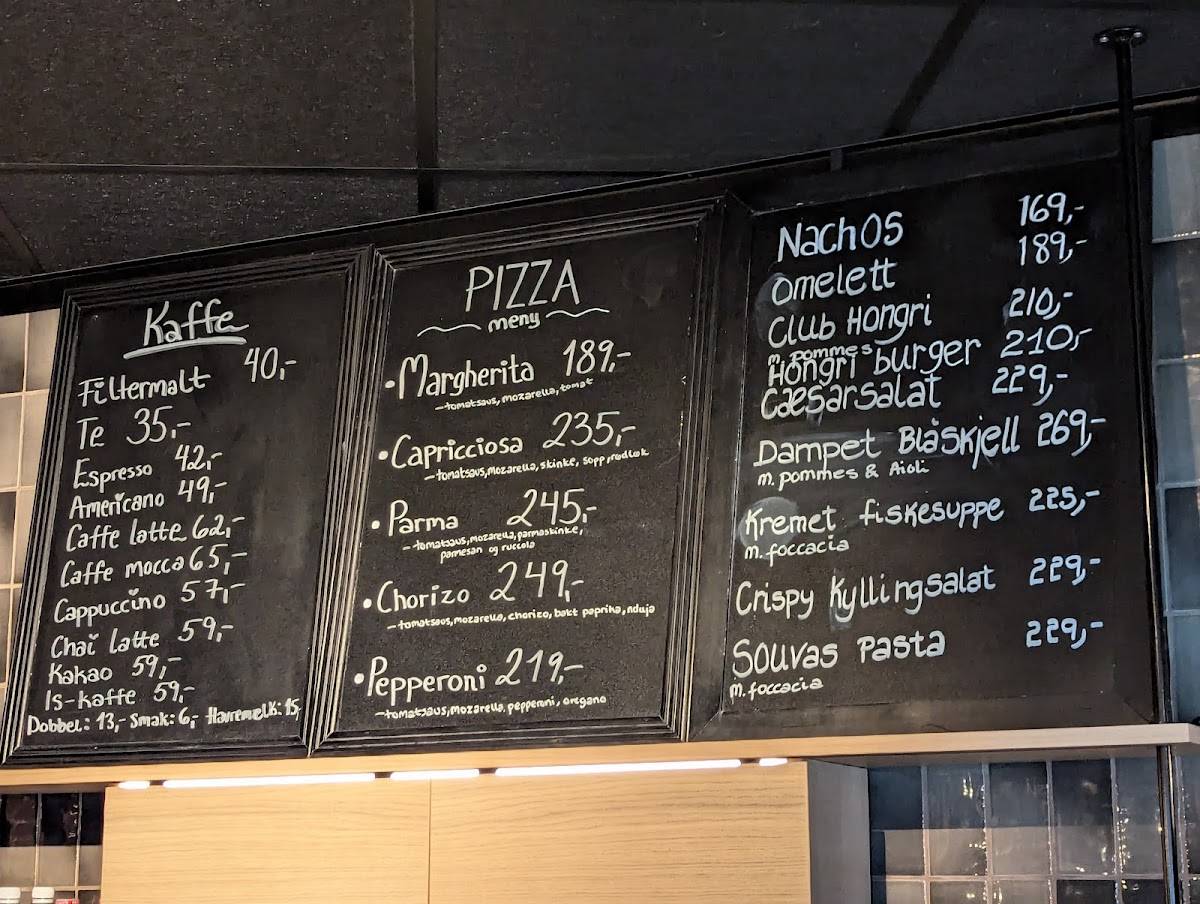 Kaffe
Filtermalt 40,-
Te 35,-
Espresso 42,-
Americano 49,-
Caffe latte 62,-
Caffe mocca 65,-
Cappuccino 57,-
Chai latte 59,-
Kakao 59,-
Is-kaffe 59,-
Dobbel: 13,- Smak: 6,- Havremelk: 15,
PIZZA
meny
•Margherita 189,-
-tomatsaus, mozarella, tomat
•Capricciosa 235,-
-tomatsaus, mozarella, skinke, sopp, rødløk
•Parma 245,-
-tomatsaus, mozarella, parmaskinke,
parmesan og ruccola
•Chorizo 249,-
-tomatsaus, mozarella, chorizo, bakt paprika, nduja
•Pepperoni 219,-
-tomatsaus, mozarella, pepperoni, oregano
Nachos 169,-
Omelett 189,-
Club Hongri 210,-
m. pommes
Hongri burger 210,-
Cæsarsalat 229,-
Dampet Blåskjell 269,-
m. pommes & Aioli
Kremet fiskesuppe 225,-
m. foccacia
Crispy Kyllingsalat 229,-
Souvas Pasta 229,-
m. foccacia